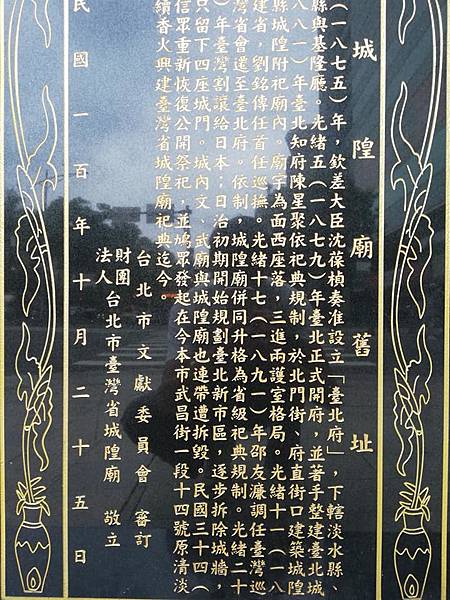 城隍廟舊址
（一八七五）年，欽差大臣沈葆楨奏准設立「臺北府」，下轄淡水縣、
縣與基隆廳。光緒五（一八七九）年臺北正式開府，並著手整建臺北城
八八一）年臺北知府陳星聚依祀典規制，於北門街、府直街口建築城隍
縣城隍附祀廟內。廟宇為面西座落，三進兩護室格局。光緒十一（一八
建省，劉銘傳任首任巡撫。光緒十七（一八九一）年邵友濂調任臺灣巡
灣省會遷至臺北府。依制，城隍廟併同升格為省級祀典規制。光緒二十
）年臺灣割讓給日本；日治初期開始規劃臺北新市區，逐步拆除城牆，
只留下四座城門。城內文、武廟與城隍廟也連帶遭拆毀。民國三十四（
信眾重新恢復公開祭祀，並鳩眾發起在今本市武昌街一段十四號原清淡
續香火興建臺灣省城隍廟祀典迄今。
台北市文獻委員會 審訂
財團法人台北市臺灣省城隍廟 敬立
民國一百年十月二十五日